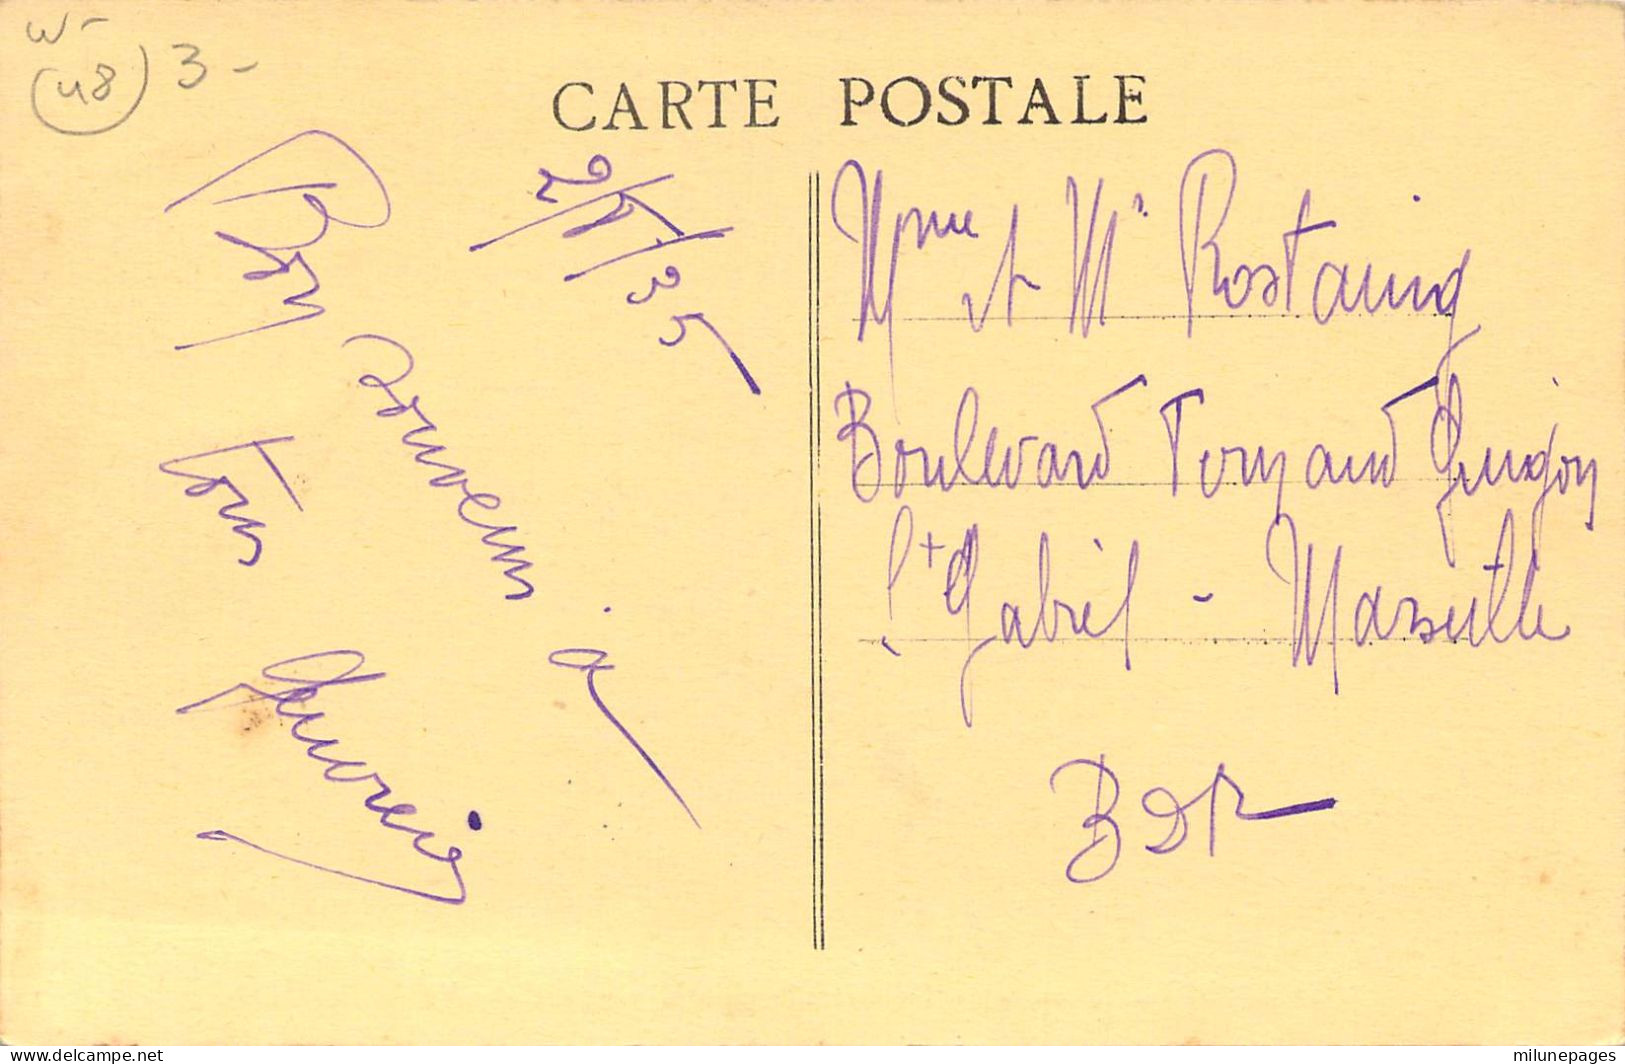 W-
(48) 3-
CARTE POSTALE
2/5/35
Bon
souvenir à
tous
Mme et Mr Rostaing
Boulevard Fernand
St Gabriel - Marseille
BDR
Delcampe.net
milunepages